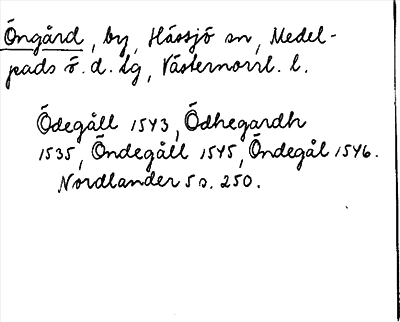 Öngård, by, Hässjö sn, Medel-
pads ö. d. lg, Västernorrl. l.
Ödegåll 1543, Ödhegårdh
1535, Öndegåll 1545, Öndegål 1546.
Nordlander 5 s. 250.